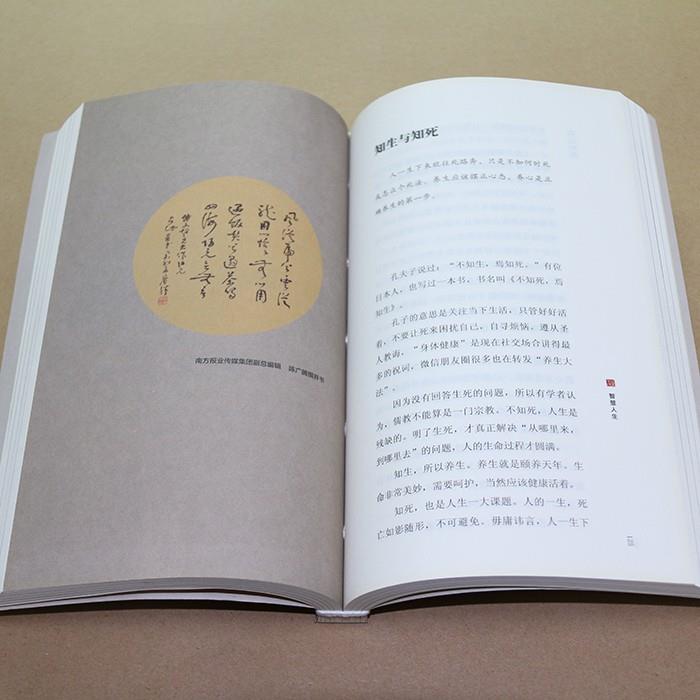 风从虎云从
南方报业传媒集团副总编辑
知生与知死
人一生下来就往死路奔，只是不知何时死
及怎么个死法。养生应该摆正心态。养心是正
确养生的第一步。
孔夫子说过：“不知生，焉知死。”有位
日本人，也写过一本书，书名叫《不知死，焉
知生》。
孔子的意思是关注当下生活，只管好好活
着，不要让死来困扰自己，自寻烦恼。遵从圣
人教诲，“身体健康”是现在社交场合讲得最
多的祝词，微信朋友圈很多也在转发“养生大
法”。
因为没有回答生死的问题，所以有学者认
为，儒教不能算是一门宗教。不知死，人生是
残缺的。明了生死，才真正解决“从哪里来，
到哪里去”的问题，人的生命过程才圆满。
知生，所以养生。养生就是颐养天年。生
命非常美妙，需要呵护，当然应该健康活着。
知死，也是人生一大课题。人的一生，死
亡如影随形，不可避免。毋庸讳言，人一生下
智慧人生